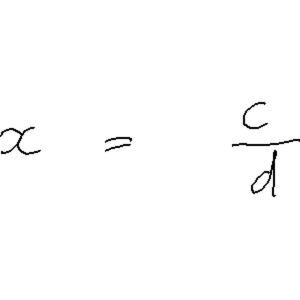 x = c/d